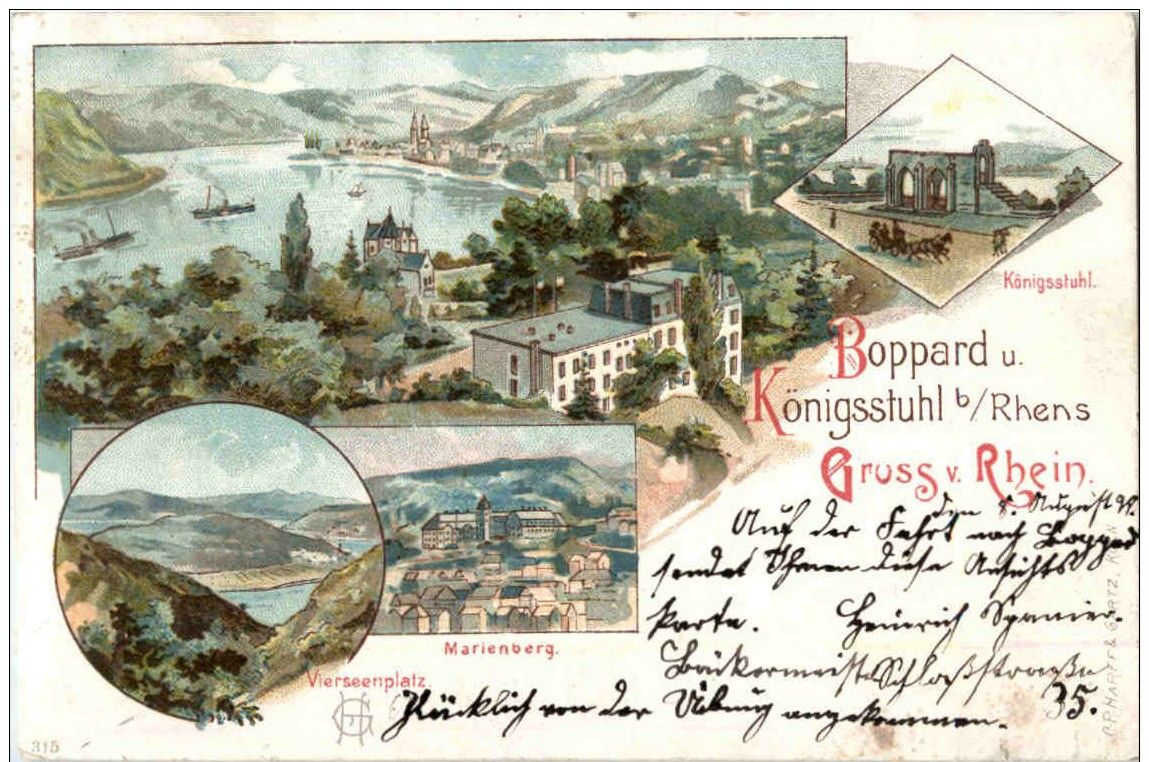 Königsstuhl.
Boppard u.
Königsstuhl b/Rhens
Gruss v. Rhein.
den 8. August 99.
Auf der Fahrt nach Boppard
sendet Ihnen diese Ansichts
karte. Heinrich Spanier.
Bäckermeist Schloßstraße
35.
Glücklich von der Übung angekommen.
Marienberg.
Vierseenplatz.
315